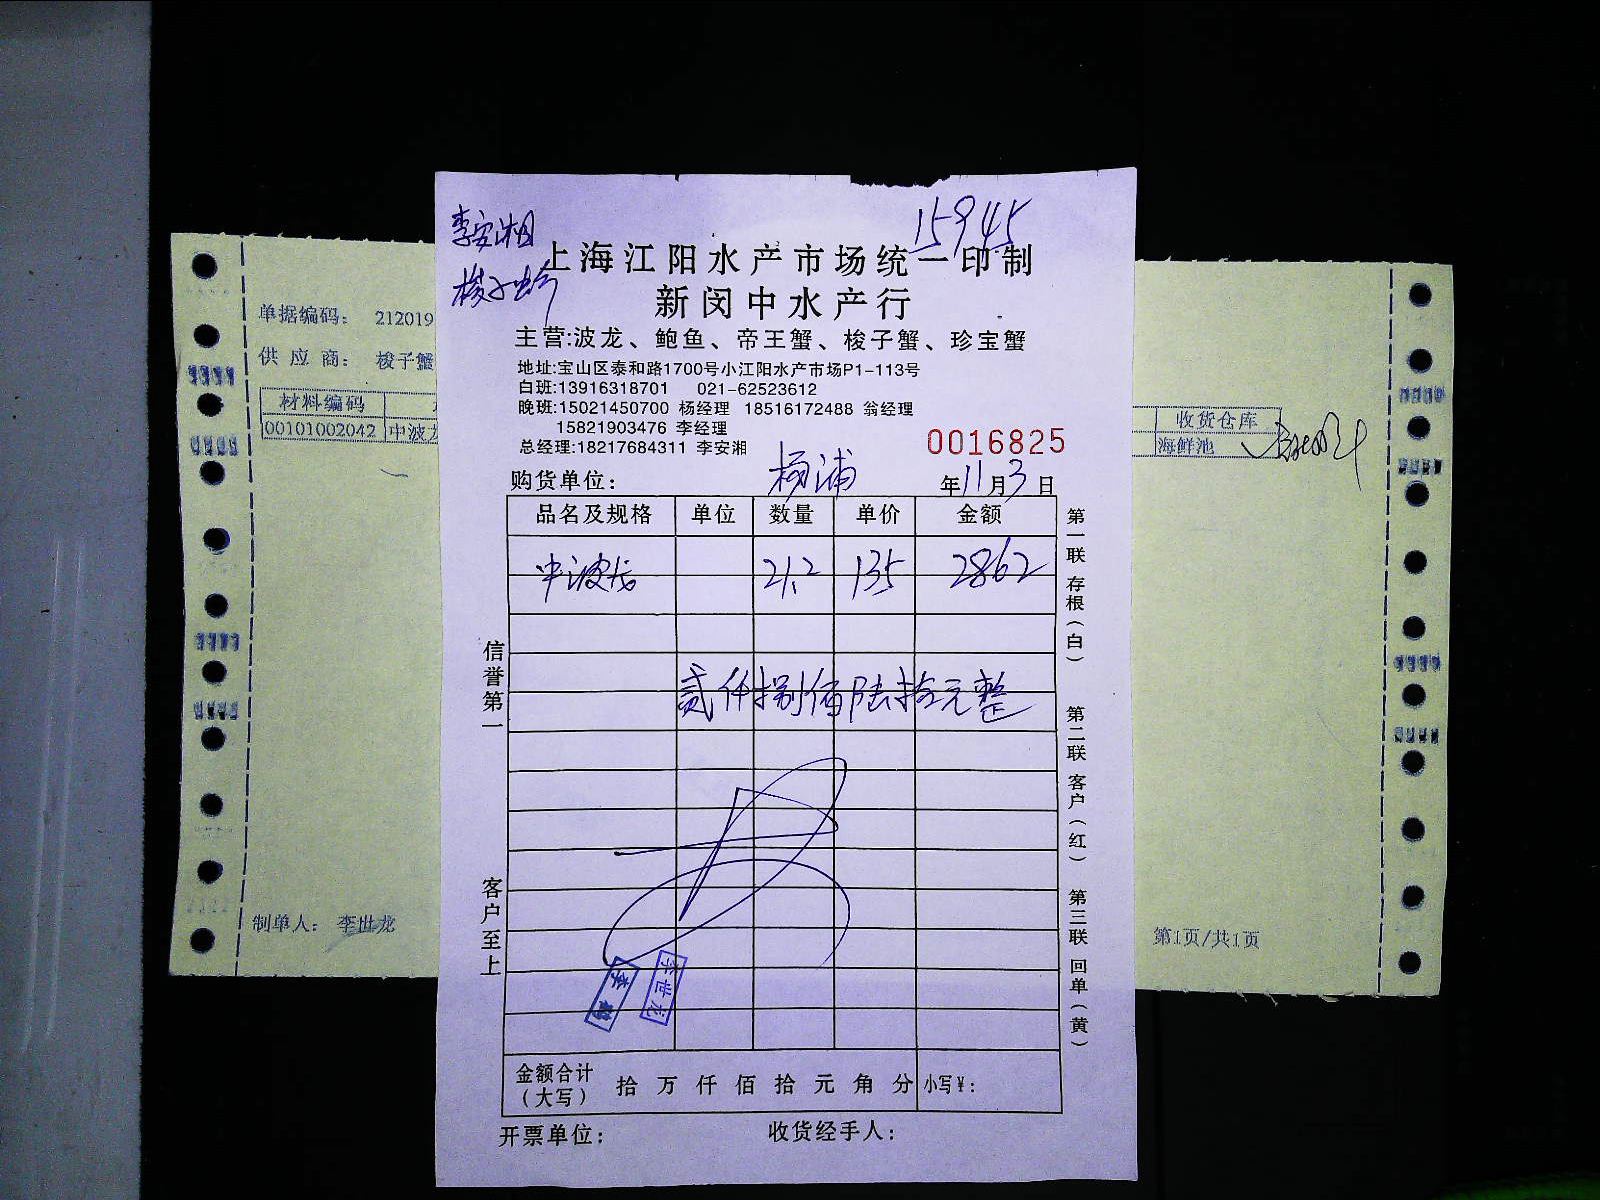 李安湘
15945
梭子蟹
上海江阳水产市场统一印制
新闵中水产行
主营:波龙、鲍鱼、帝王蟹、梭子蟹、珍宝蟹
地址:宝山区泰和路1700号小江阳水产市场P1-113号
白班:13916318701 021-62523612
晚班:15021450700 杨经理 18516172488 翁经理
15821903476 李经理
总经理:18217684311 李安湘
0016825
购货单位: 杨浦 年11月3日
品名及规格 单位 数量 单价 金额
中波龙 21.2 135 2862
贰仟捌佰陆拾元整
信誉第一
客户至上
第一联 存根(白)
第二联 客户(红)
第三联 回单(黄)
李世龙
金额合计(大写) 拾 万 仟 佰 拾 元 角 分 小写¥:
开票单位: 收货经手人:
单据编码: 212019
供应商: 梭子蟹
材料编码
00101002042 中波龙
收货仓库
海鲜池
制单人: 李世龙
第1页/共1页